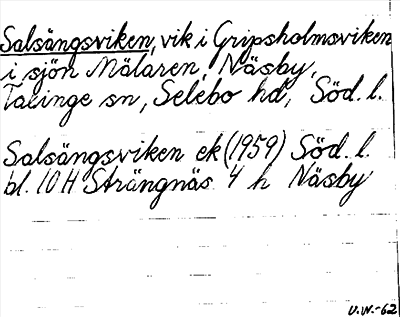 Salsängsviken, vik i Gripsholmsviken
i sjön Mälaren, Näsby,
Taxinge sn, Selebo hd, Söd. l.
Salsängsviken ek (1959) Söd. l.
bl. 10 H Strängnäs 4 h Näsby
U.W.-62